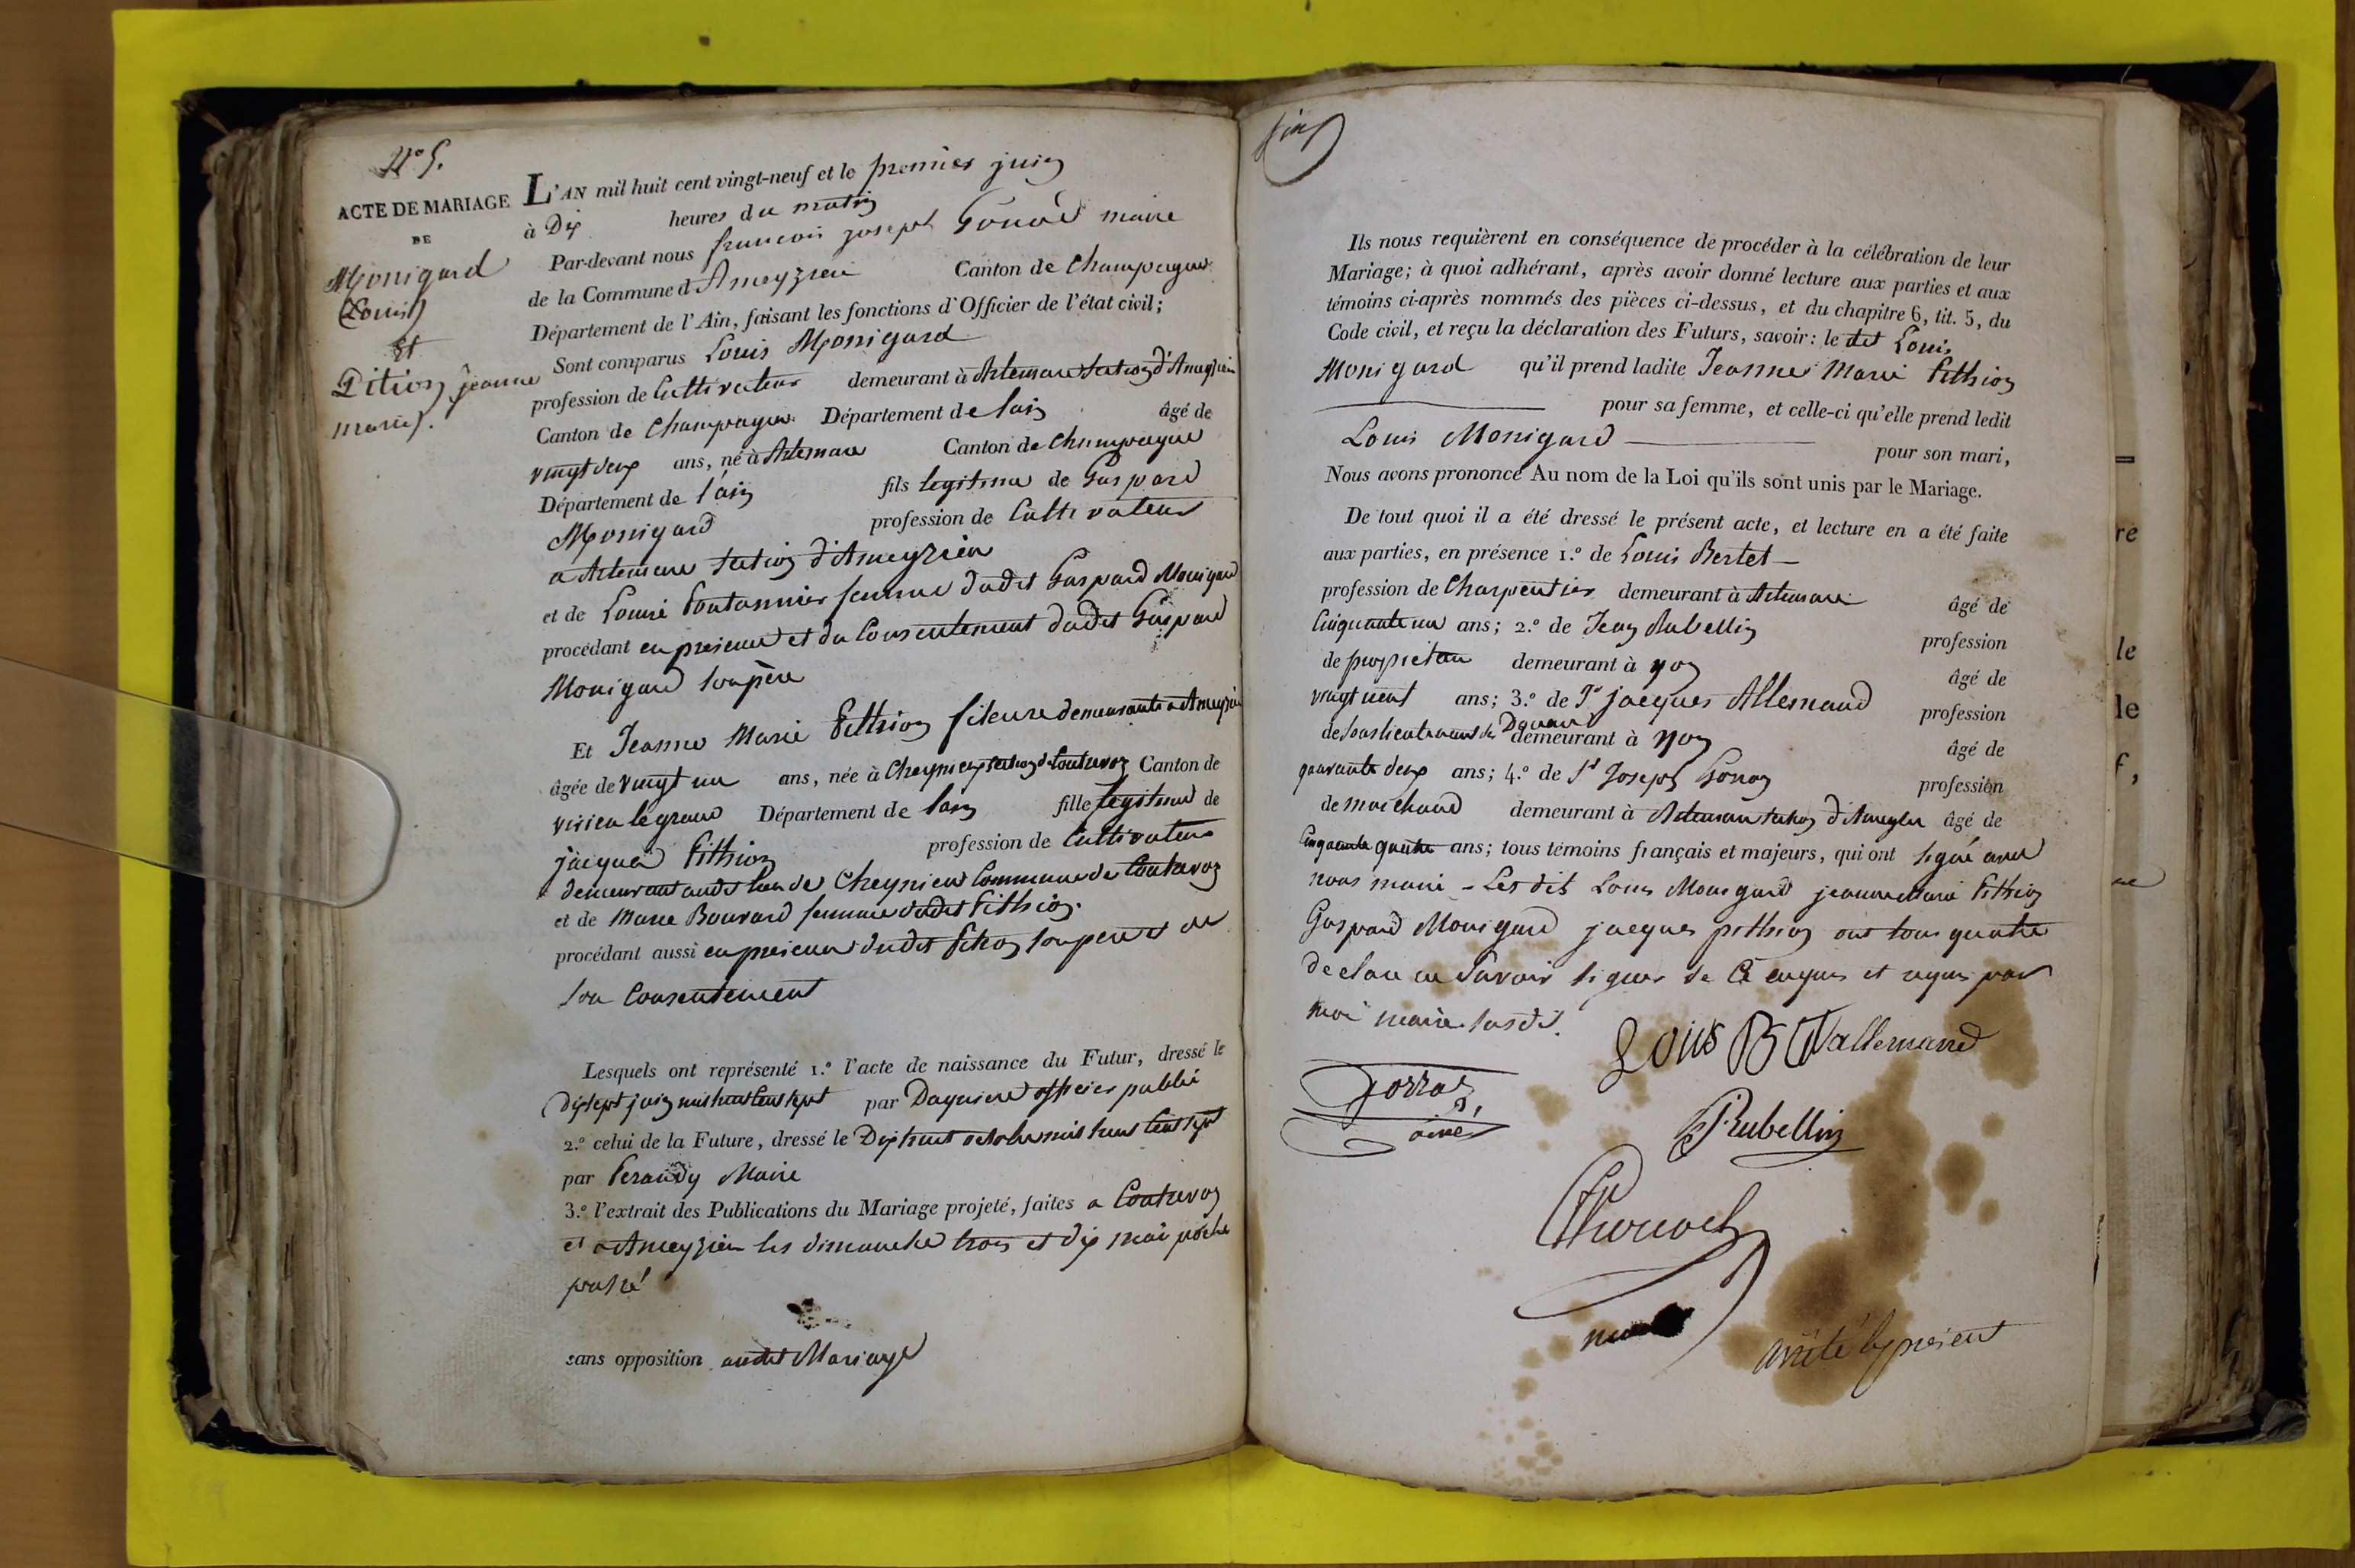 N.º 5.
ACTE DE MARIAGE
DE
Monigard
(Louis)
Et
Pition jeanne
marie).
L'AN mil huit cent vingt-neuf et le premier juin
à Dix heures du matin
Par-devant nous francois joseph maire
de la Commune d'Ameyzieu Canton de Champagne
Département de l'Ain, faisant les fonctions d'Officier de l'état civil;
Sont comparus Louis Monigard
profession de Cultivateur demeurant à Artemare d'Ameyzieu
Canton de Champagne Département de lain âgé de
vingt deux ans, né à Artemare Canton de Champagne
Département de l'ain fils legitime de Gaspard
Monigard profession de Cultivateur
a Artemare d'Ameyzieu
et de Louise femme dudit Gaspard Monigard
procédant en presence et du Consentement dudit Gaspard
Monigard son père
Et Jeanne Marie Pithion fileuse demeurante a Ameyzieu
âgée de vingt un ans, née à Cheynieu de Contrevoz Canton de
virieu le grand Département de lain fille legitime de
jacques Pithion profession de Cultivateur
demeurant audit lieu de Cheynieu Commune de Contrevoz
et de Marie Bouvard femme dudit Pithion
procédant aussi en presence dudit Pition son pere et de
son Consentement
Lesquels ont représenté 1.º l'acte de naissance du Futur, dressé le
Dix sept juin mil huit Cent sept par officier public
2.º celui de la Future, dressé le Dix huit octobre mil huit Cent sept
par Maire
3.º l'extrait des Publications du Mariage projeté, faites a Contrevoz
et a Ameyzieu les dimanche trois et dix mai proche
passé
sans opposition audit Mariage
Ils nous requièrent en conséquence de procéder à la célébration de leur
Mariage; à quoi adhérant, après avoir donné lecture aux parties et aux
témoins ci-après nommés des pièces ci-dessus, et du chapitre 6, tit. 5, du
Code civil, et reçu la déclaration des Futurs, savoir: le dit Louis
Monigard qu'il prend ladite Jeanne Marie Pithion
pour sa femme, et celle-ci qu'elle prend ledit
Louis Monigard pour son mari,
Nous avons prononcé Au nom de la Loi qu'ils sont unis par le Mariage.
De tout quoi il a été dressé le présent acte, et lecture en a été faite
aux parties, en présence 1.º de Louis Bertet
profession de Charpentier demeurant à Artemare âgé de
Cinquante un ans; 2.º de Jean Rubellin profession
de demeurant à yon âgé de
vingt neuf ans; 3.º de Sr jacques Allemand profession
de sous lieutenant de Douane demeurant à yon âgé de
quarante deux ans; 4.º de Sr Joseph profession
de marchand demeurant à Artemare âgé de
Cinquante quatre ans; tous témoins français et majeurs, qui ont signé avec
nous maire - Les dits Louis Monigard jeanne Marie Pithion
Gaspard Monigard jacques pithion ont tous quatre
declare ne savoir signer de Ce enquis et requis par
moi maire susdit.
Louis B allemand
ainé
Rubellin
re
le
le
f,